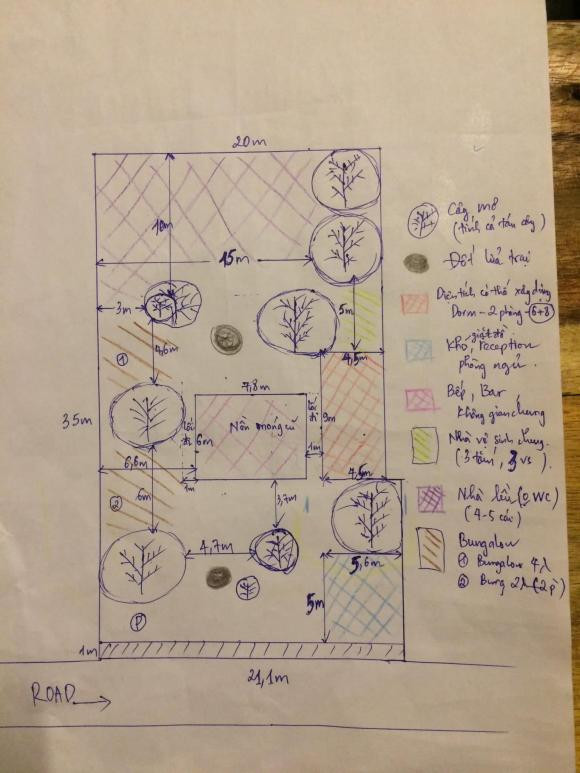 20m
10m
15m
3m
5m
4,5m
1
4,6m
7,8m
35m
lối đi
6m
Nền móng cũ
lối đi
9m
1m
6,6m
1m
4,5m
6m
3,7m
2
4,7m
5,6m
5m
P
1m
21,1m
ROAD
Cây mơ
(tính cả tán cây)
Đốt lửa trại
Diện tích có thể xây dựng
Dorm - 2 phòng - 6+8
giặt đồ
Kho, reception
phòng ngủ.
Bếp, Bar
Không gian chung
Nhà vệ sinh chung.
(3 tắm, 3 vs)
Nhà lều (0 WC)
(4-5 cái)
Bungalow
1 Bungalow 4
2 Bung 2